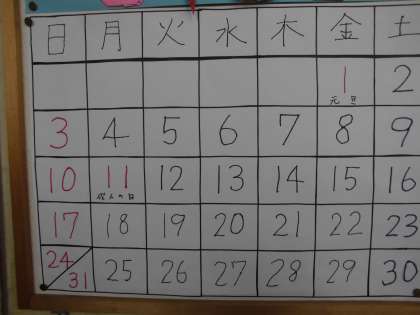 日 月 火 水 木 金 土
1 2
元旦
3 4 5 6 7 8 9
10 11 12 13 14 15 16
成人の日
17 18 19 20 21 22 23
24 31 25 26 27 28 29 30